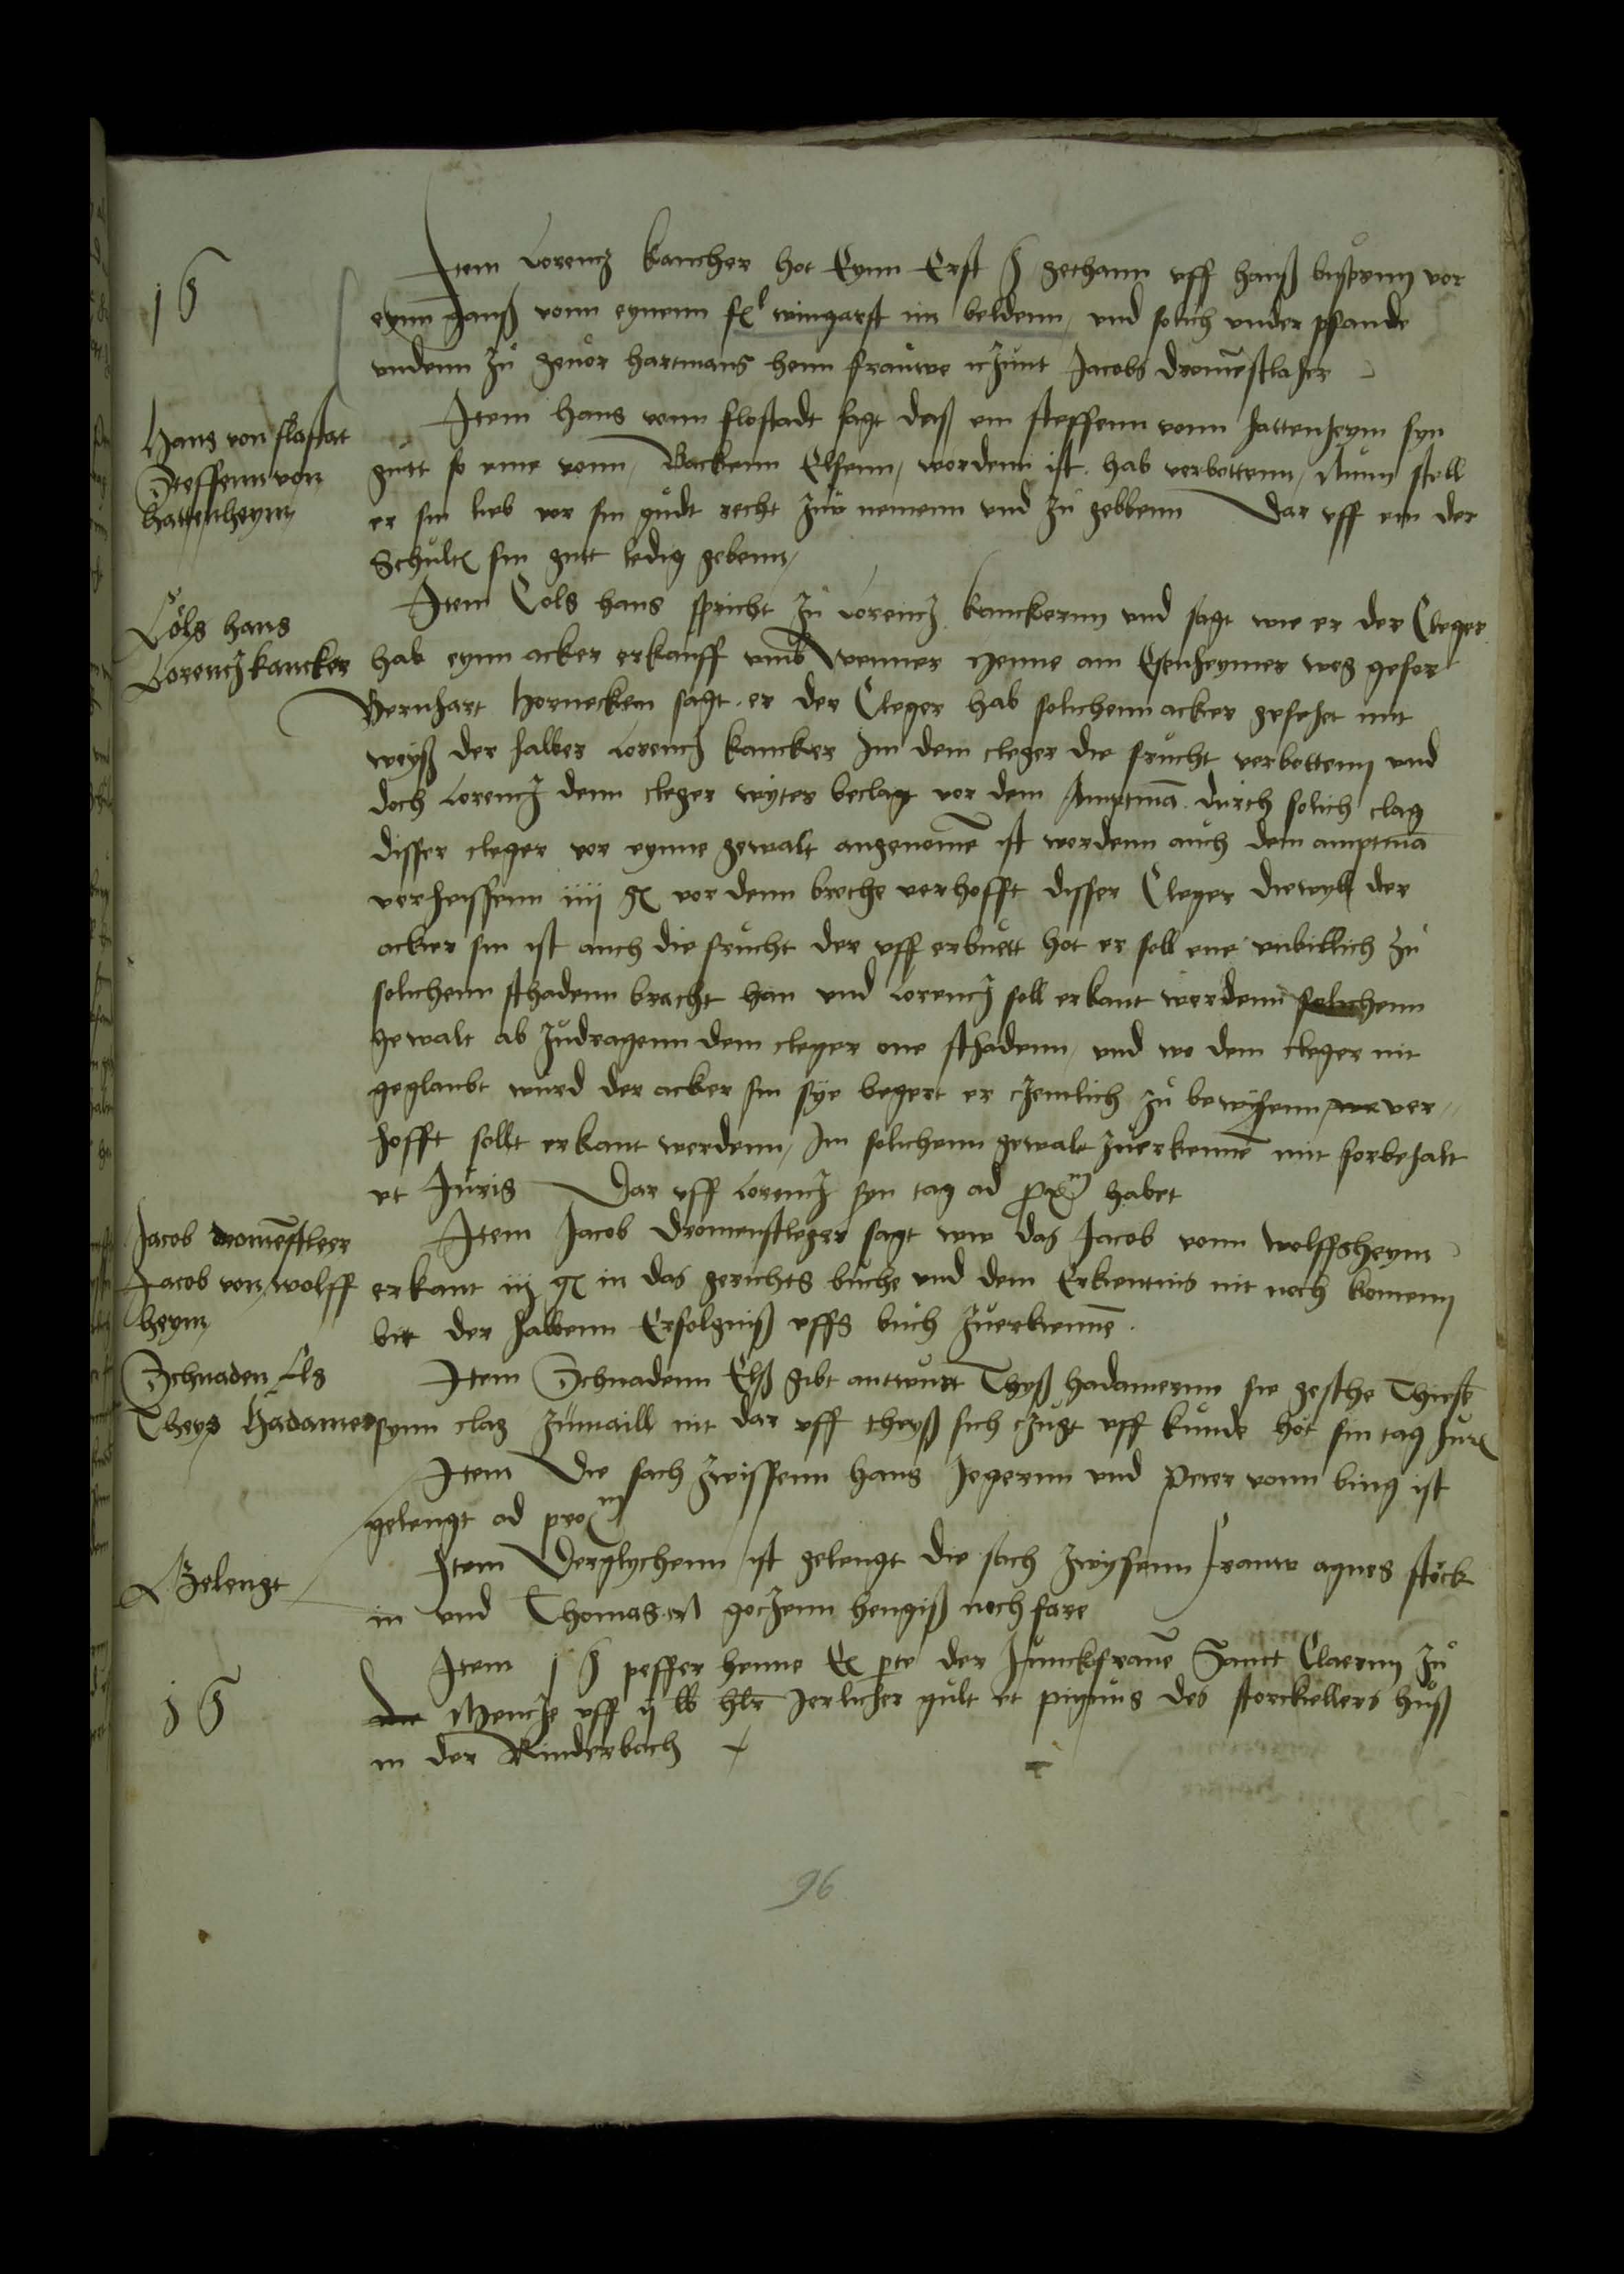 j S
Item Lorencz kancher hot Eynn Erst S gethann uff hanß bußernn vor
eynn ganß vonn eynenn wingarst im beldenn und solich under pfande
undenn zu hartmans henn frauwe iczunt Jacobs dromeslaher
Hans von flastat
Steffenn von
hattenheym
Item hans vonn flostadt sagt daß em steffenn vonn hattenheym syn
gutt so eme vonn Backenn Elsenn wordenn ist hab verbottenn Nunn stell
er sin lieb vor sin gudt recht zuu nemenn und zu gebbenn Dar uff em der
Schult sin gutt ledig gebenn
Cols hans
Lorencz kancker
Item Cols hans spricht zu Lorencz kanckernn und sagt wie er der Cleger
hab eynn acker erkauff umb wenner Henne am Esenheymer weg gefor
Bernhart hornecken sagt er der Cleger hab solichenn acker gesehet mit
weyß der halber Lorencz kancker Im dem cleger die frucht verbottenn und
doch Lorencz denn cleger wyter beclagt vor dem Amptma durch solich clag
disser cleger vor eynne gewalt angenome ist wordenn auch dem amptma
verheissenn iiij g vor denn breche verhofft disser Cleger diewyll der
acker sin ist auch die frucht der uff erbuett hot er soll ene unbillich zu
solichenn schadenn bracht han und Lorencz soll erkant werdenn solichenn
gewalt ab zudragenn dem cleger one schadenn und wo dem cleger nit
geglaubt wurd der acker sin sye begert er czemlich zu bewysenn ver
hofft sollt erkant werdenn Im solichenn gewalt zuerkenne mit forbehalt
et Juris Dar uff Lorencz syn tag ad prox habet
Jacob dromesleer
Jacob von wolff
heym
Item Jacob dromensleger sagt wie das Jacob vonn wolffsheym
erkant iij g in das gerichts buche und dem Erkentnis nit noch komenn
bit der halbenn Erfolgniß uffs buch zuerkenne
Schnaden Els
Theys Hadamer
Item Schnadenn Elß gibt antwurt Thyß hadamernn sie gesthe Thieß
synn clag zumaill nit dar uff theyß sich czugt uff kunde hot sin tag
Item Die sach zwissenn hans Jegernn und Peter vonn bing ist
gelengt ad prox
Gelengt
Item Derglychenn ist gelengt die sach zwysenn frauw agnes stock
in und Thomas goczenn hengiß nochfare
j S
Item j S peffer henne Ex pte der Junckfraue Sanct Claernn zu
Mencze uff ij lb hlr Jerlicher gult et pignus des storckellers huß
in der Rinderbach
96